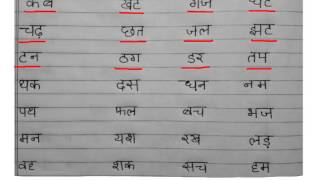 कब खट गज घट
चढ़ छत जल झट
टन ठग डर तप
थक दस धन नम
पथ फल बच भज
मन यश रख लड़
वह शक सच हम